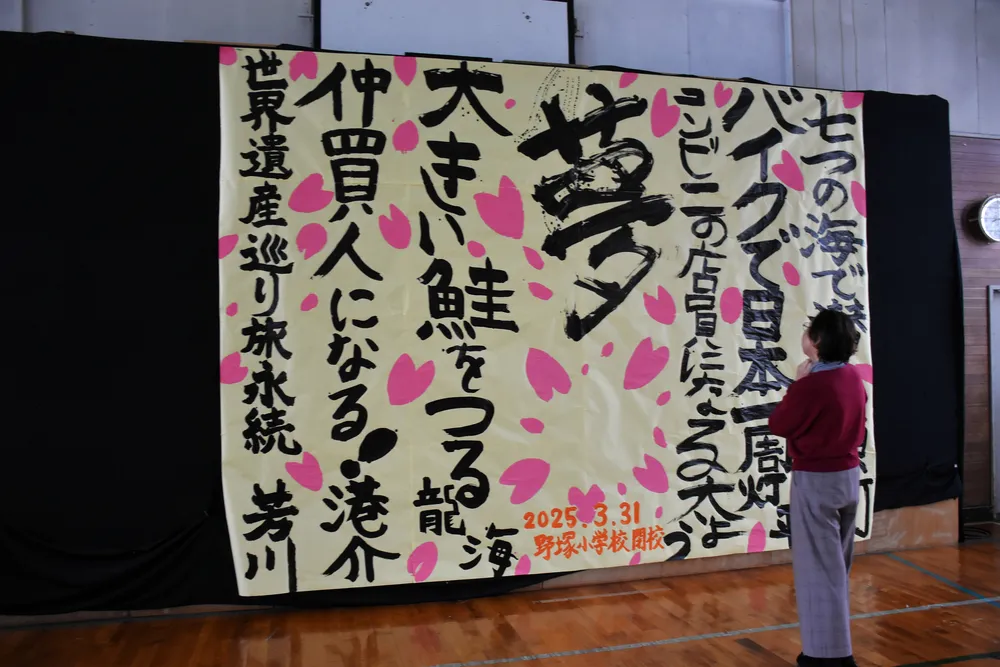 七つの海で
バイクで日本一周灯
コンビニの店員になる大よう
夢
大きい鮭をつる
龍海
仲買人になる!
港介
世界遺産巡り旅永続
芳川
2025.3.31
野塚小学校閉校